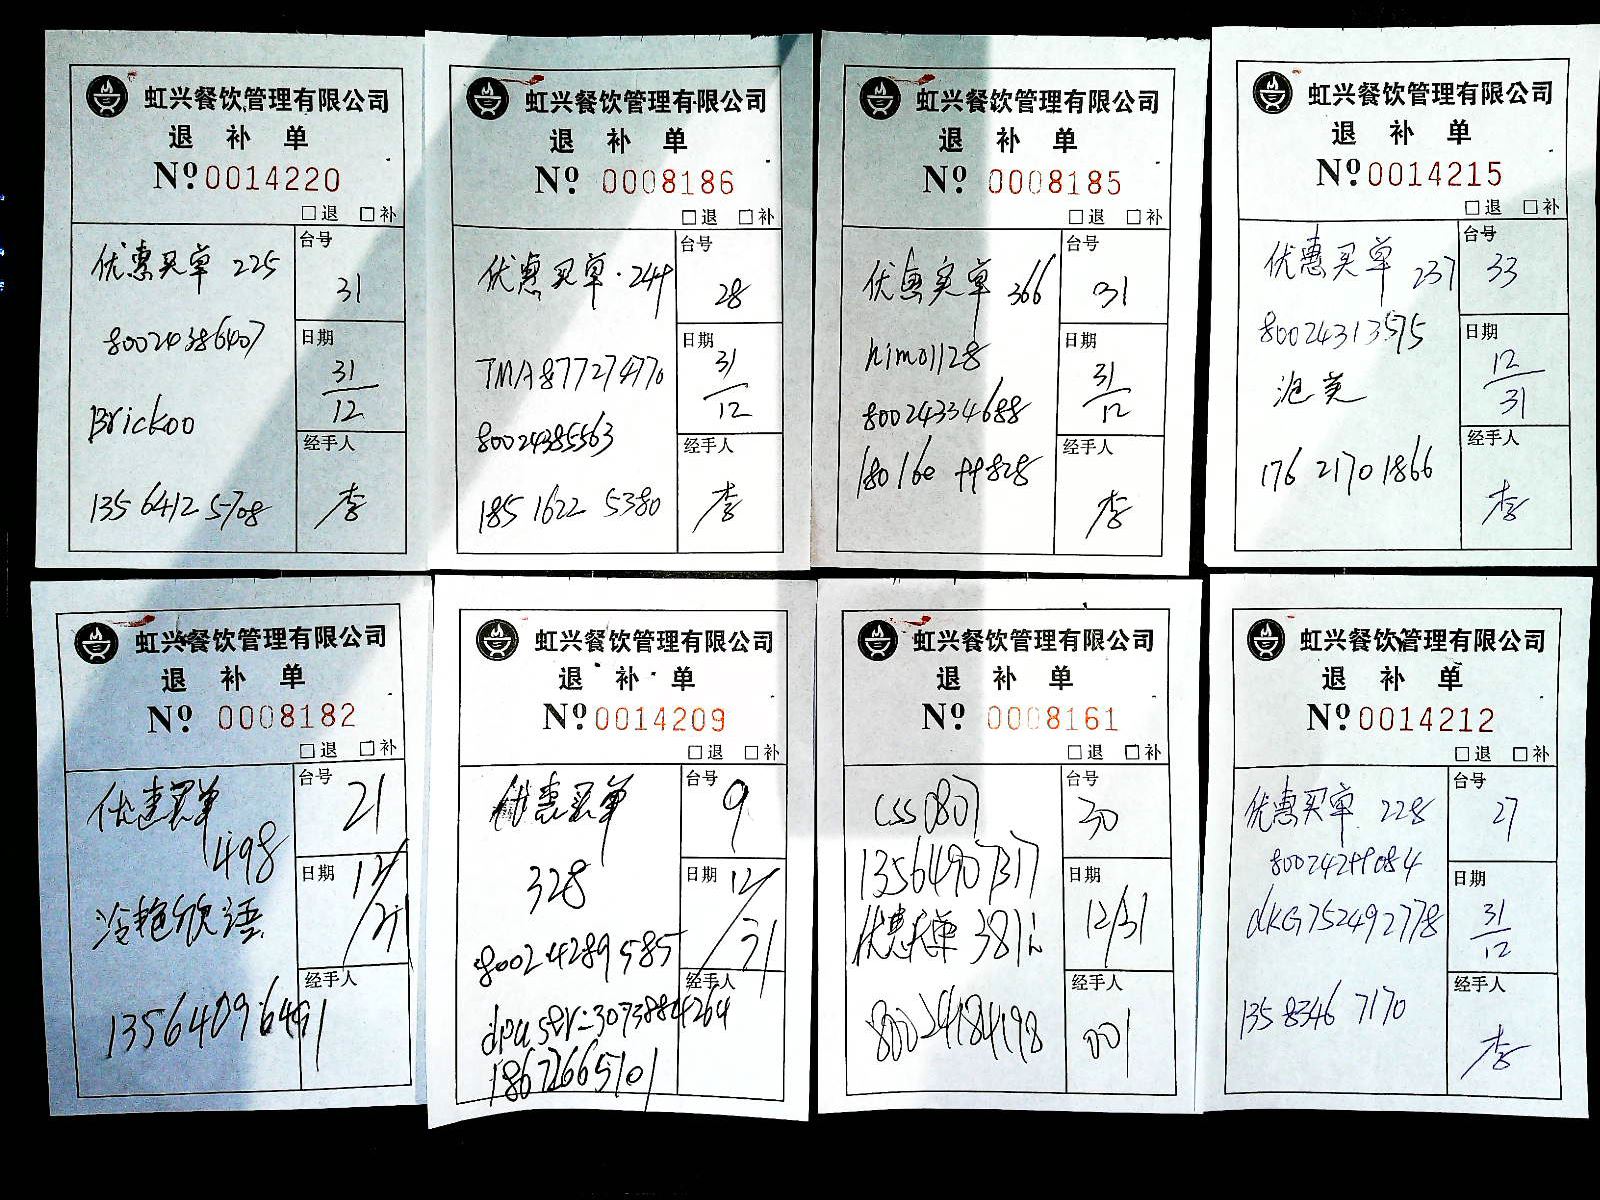 虹兴餐饮管理有限公司
退 补 单
Nº 0014220
□退 □补
优惠买单 225
80024386407
Brickoo
135 6412 5708
台号
31
日期
31/12
经手人
李
虹兴餐饮管理有限公司
退 补 单
Nº 0008186
□退 □补
优惠买单·244
TMA877274770
80024385563
185 1622 5380
台号
28
日期
31/12
经手人
李
虹兴餐饮管理有限公司
退 补 单
Nº 0008185
□退 □补
优惠买单 366
himo1128
80024334688
台号
31
日期
31/12
经手人
李
虹兴餐饮管理有限公司
退 补 单
Nº 0014215
□退 □补
优惠买单 237
80024313575
176 2170 1866
台号
33
日期
12/31
经手人
李
虹兴餐饮管理有限公司
退 补 单
Nº 0008182
□退 □补
优惠买单
498
台号
21
日期
12/31
经手人
虹兴餐饮管理有限公司
退 补 单
Nº 0014209
□退 □补
优惠买单
328
80024289585
dpuser:30738844264
18672665101
台号
9
日期
12/31
经手人
虹兴餐饮管理有限公司
退 补 单
Nº 0008161
□退 □补
css0807
13564907317
优惠买单 381
80024184198
台号
30
日期
12/31
经手人
001
虹兴餐饮管理有限公司
退 补 单
Nº 0014212
□退 □补
优惠买单 228
80024244084
dKG752492778
135 8346 7170
台号
27
日期
31/12
经手人
李